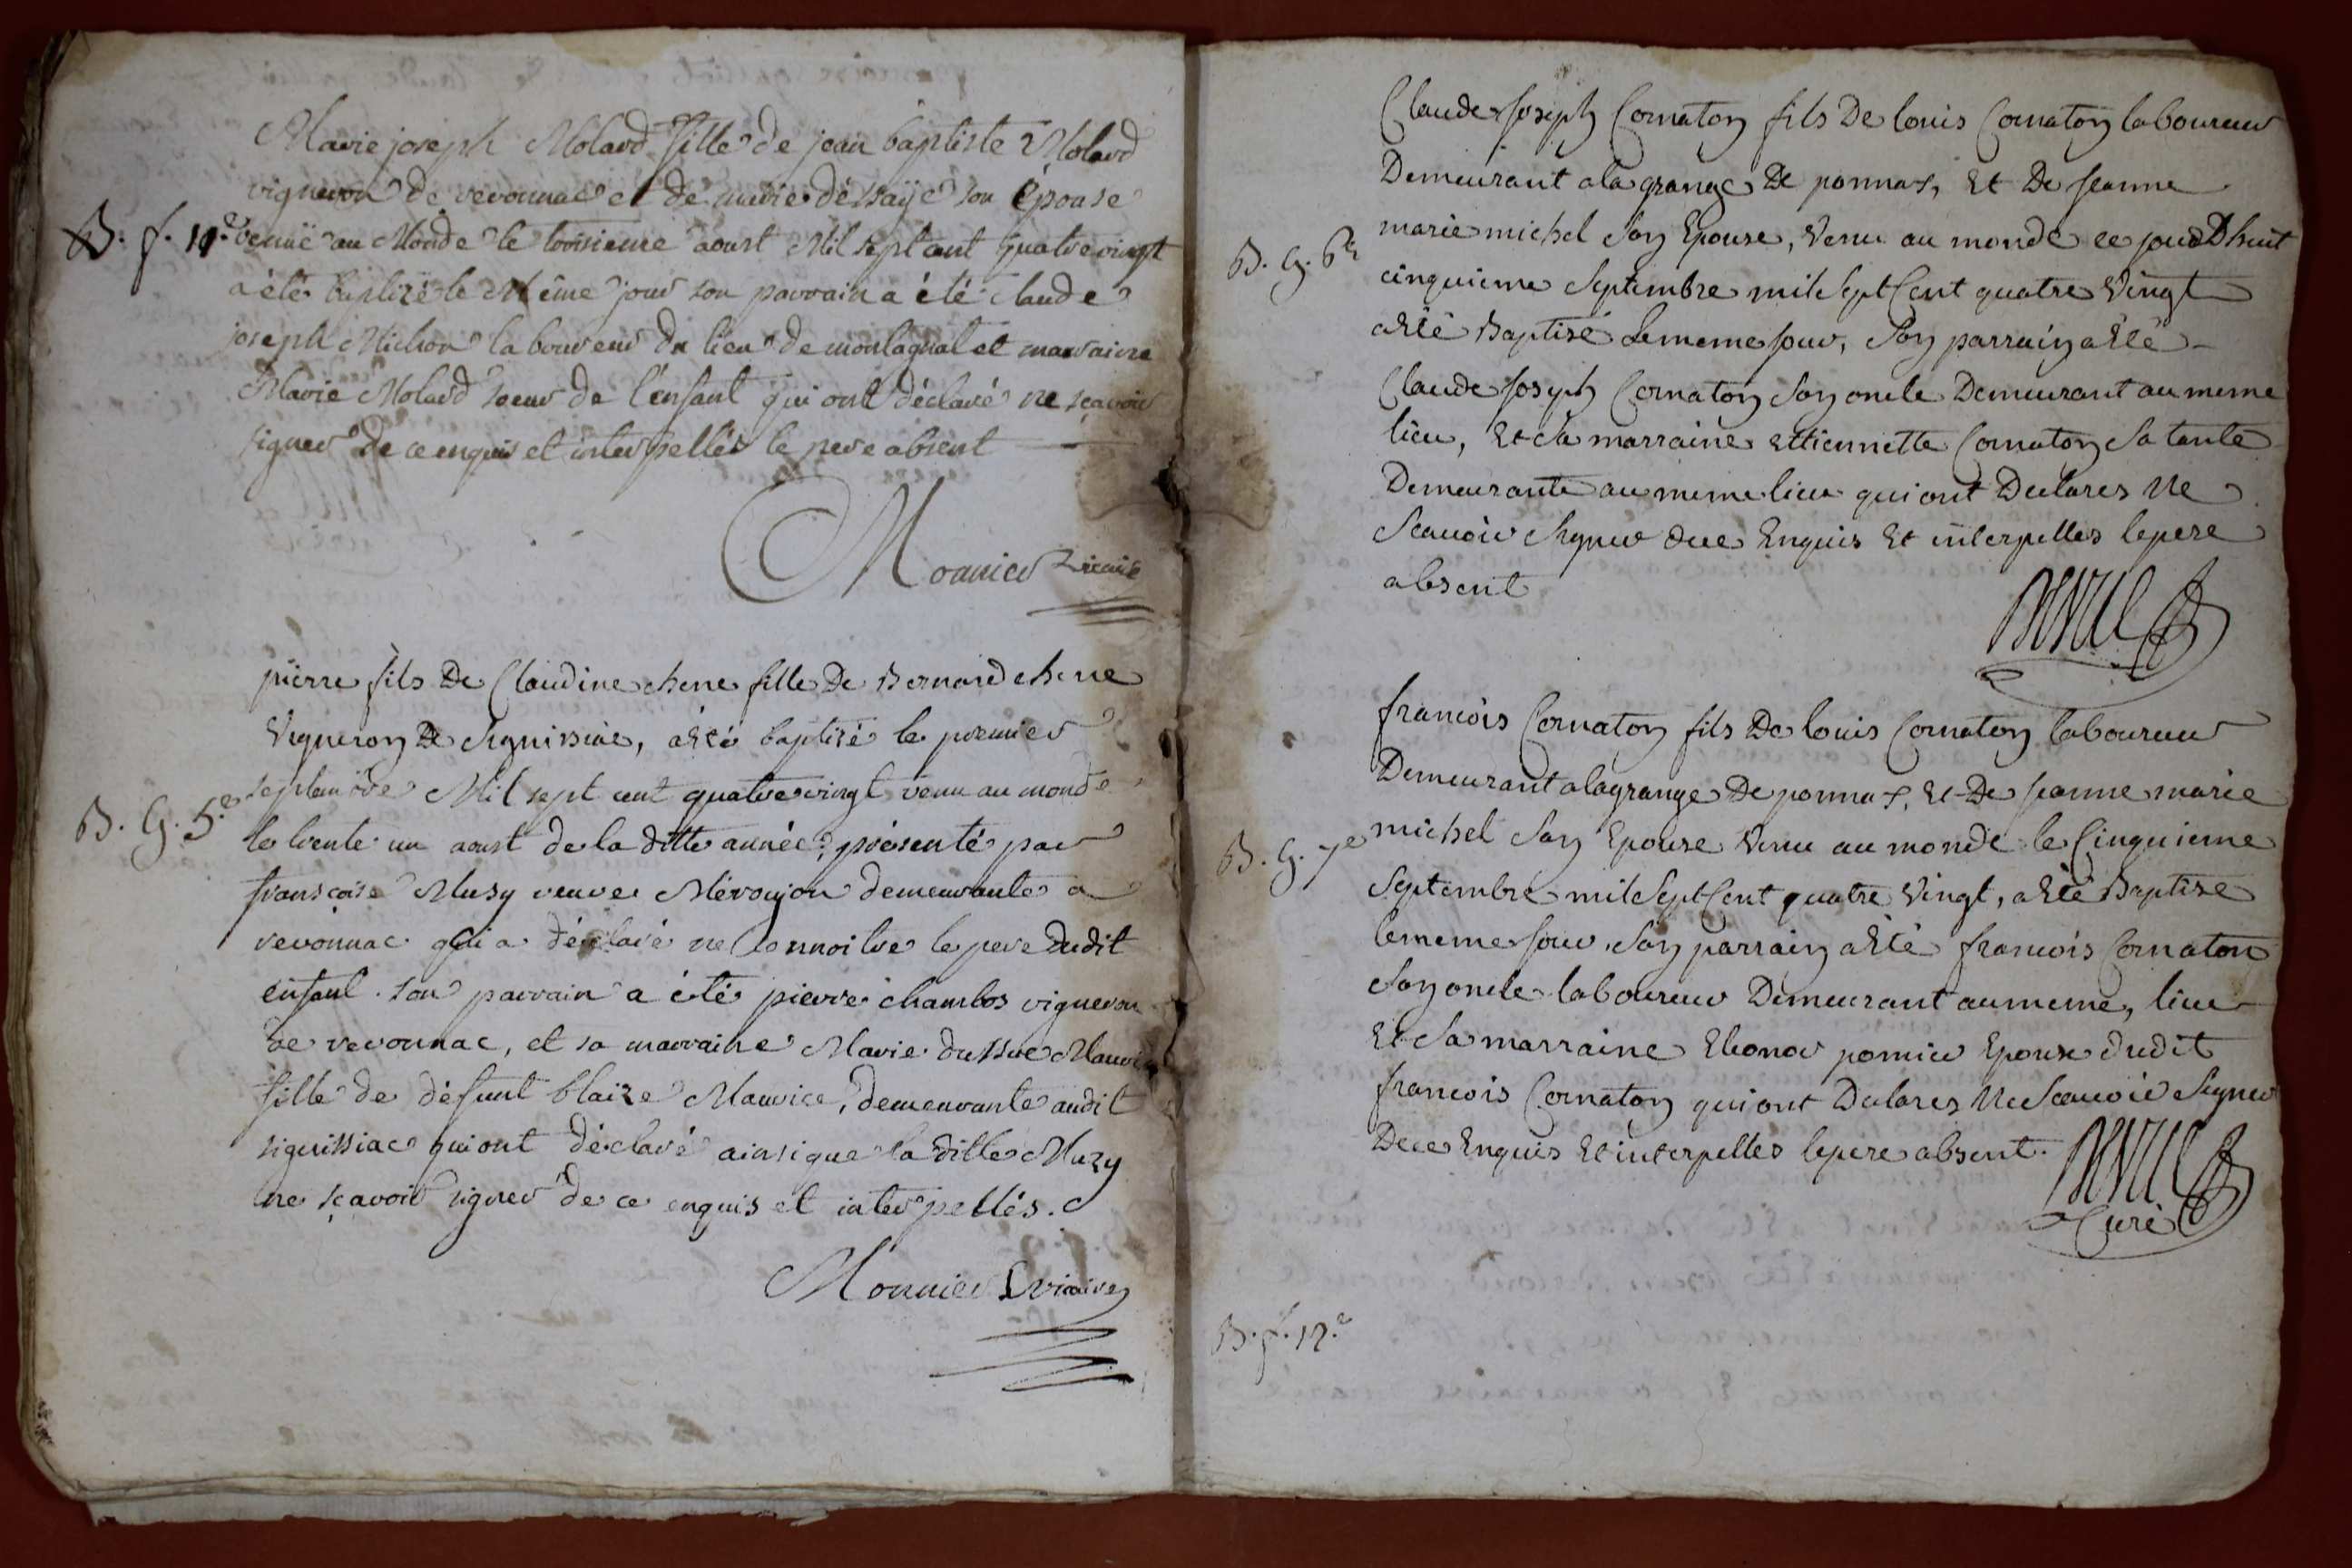 Marie joseph Molard fille de jean baptiste Molard
vigneron de revonnac et de marie dessaÿe son Épouse
B. f. 11.e venuë au Monde le troisieme aoust Mil sept cent Quatre vingt
a été baptizé le Même jour son parrain a été claude
joseph Michon laboureur du lieu de montagnat et marraine
Marie Molard soeur de l'enfant qui ont déclaré ne sçavoir
signer de ce enquis et interpellés le pere absent
Monnier Vicaire
pierre fils De Claudine chene fille De Bernard chene
Vigneron De Signissiac, a Eté baptizé le premier
septembre Mil sept cent quatre vingt venu au monde
B. G. 5.e
le trente un aoust de la ditte année, présenté par
françoise Musy veuve Mévoyon demeurante a
revonnac qui a déclaré ne Connoitre le pere dudit
enfant. son parrain a été pierre chambos vigneron
de revonnac, et sa marraine Marie
fille de défunt blaize Maurice, demeurante audit
siguissiac qui ont déclaré ainsi que la ditte Muzy
ne sçavoir signer de ce enquis et interpellés.
Monnier Vicaire
Claude Joseph Cornaton fils De louis Cornaton laboureur
Demeurant a la grange De ponnas, Et De Jeanne
marie michel Son Epouse, Venu au monde ce jourDhuit
B. G. 6e
cinquieme Septembre mil Sept Cent quatre Vingt
a Eté Baptisé le meme Jour, Son parrain a Eté
Claude Joseph Cornaton Son oncle Demeurant au meme
lieu, Et Sa marraine Ettiennette Cornaton Sa tante
Demeurante au meme lieu qui ont Declares Ne
Scauoir Signer dece Enquis Et interpelles le pere
absent
francois Cornaton fils De louis Cornaton laboureur
Demeurant a la grange De ponnas, Et De Jeanne marie
B. G. 7e
michel Son Epouse Venu au monde le Cinquieme
Septembre mil Sept Cent quatre Vingt, a Eté Baptise
le meme Jour, Son parrain a Eté francois Cornaton
Son oncle laboureur Demeurant au meme, lieu
Et Sa marraine Elionor Epouse dudit
francois Cornaton qui ont Declares Ne Scauoir Signer
Dece Enquis Et interpelles le pere absent.
Curé
B. f. 12.e